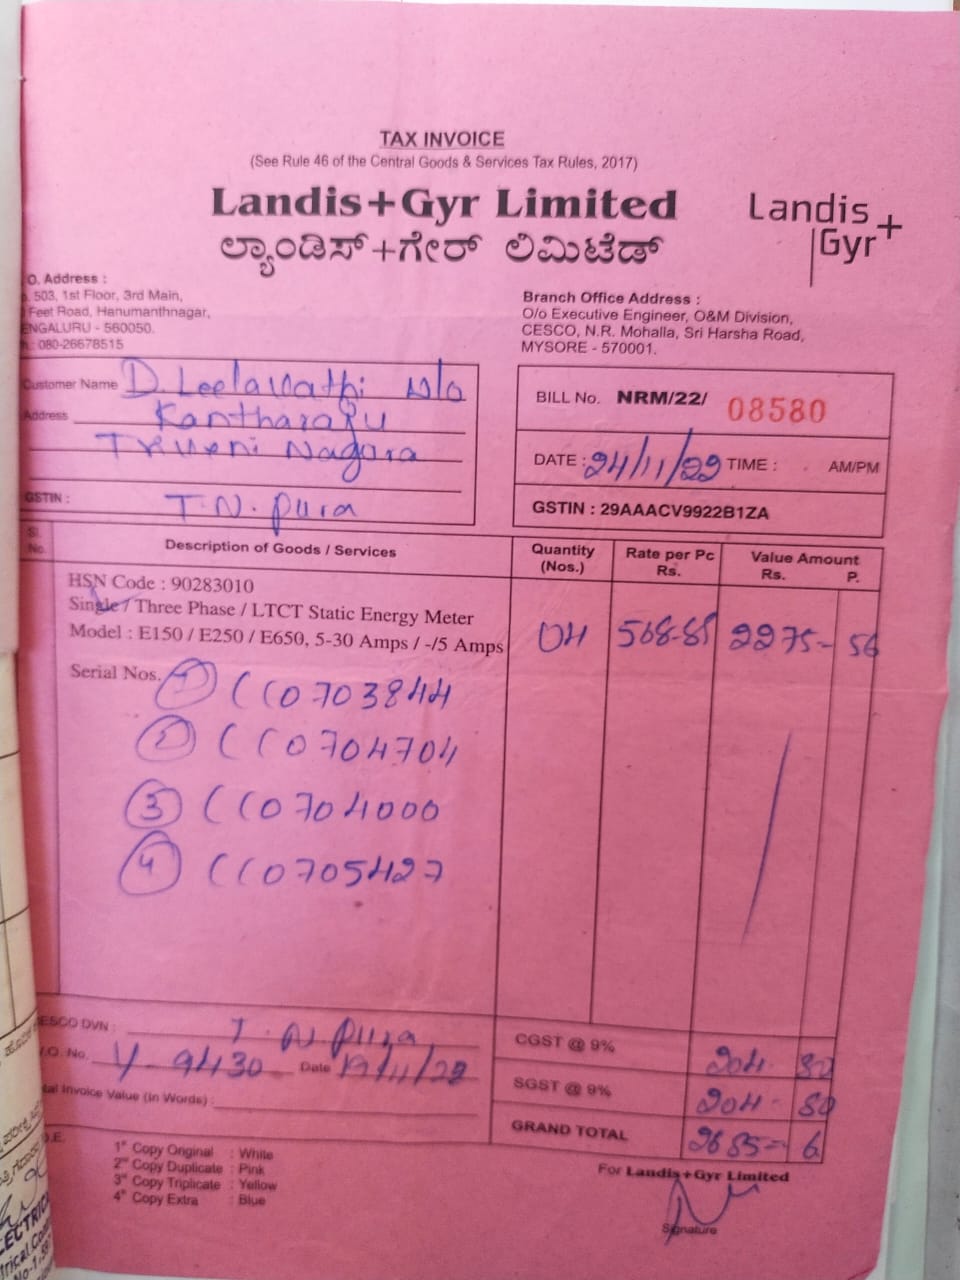 TAX INVOICE
(See Rule 46 of the Central Goods & Services Tax Rules, 2017)
Landis+Gyr Limited
ಲ್ಯಾಂಡಿಸ್+ಗೇರ್ ಲಿಮಿಟೆಡ್
Landis+
Gyr
O. Address :
503, 1st Floor, 3rd Main,
Feet Road, Hanumanthnagar,
ENGALURU - 560050.
: 080-26678515
Branch Office Address :
O/o Executive Engineer, O&M Division,
CESCO, N.R. Mohalla, Sri Harsha Road,
MYSORE - 570001.
Customer Name D. Leelavathi w/o
Address Kantharaju
Triveni Nagara
GSTIN : T.N. Pura
BILL No. NRM/22/ 08580
DATE : 24/11/22 TIME : AM/PM
GSTIN : 29AAACV9922B1ZA
Sl. No. Description of Goods / Services Quantity (Nos.) Rate per Pc Rs. Value Amount Rs. P.
HSN Code : 90283010
Single / Three Phase / LTCT Static Energy Meter
Model : E150 / E250 / E650, 5-30 Amps / -/5 Amps 04 2275- 56
Serial Nos. 1 CC0703844
2 CC0704704
3 CC0704000
4 CC0705427
ESCO DVN : T. N. Pura
.O. No. 9430 Date 19/11/22
tal Invoice Value (In Words) :
CGST @ 9% 204- 80
SGST @ 9% 204- 80
GRAND TOTAL 2685=
1st Copy Original : White
2nd Copy Duplicate : Pink
3rd Copy Triplicate : Yellow
4th Copy Extra : Blue
For Landis+Gyr Limited
Signature